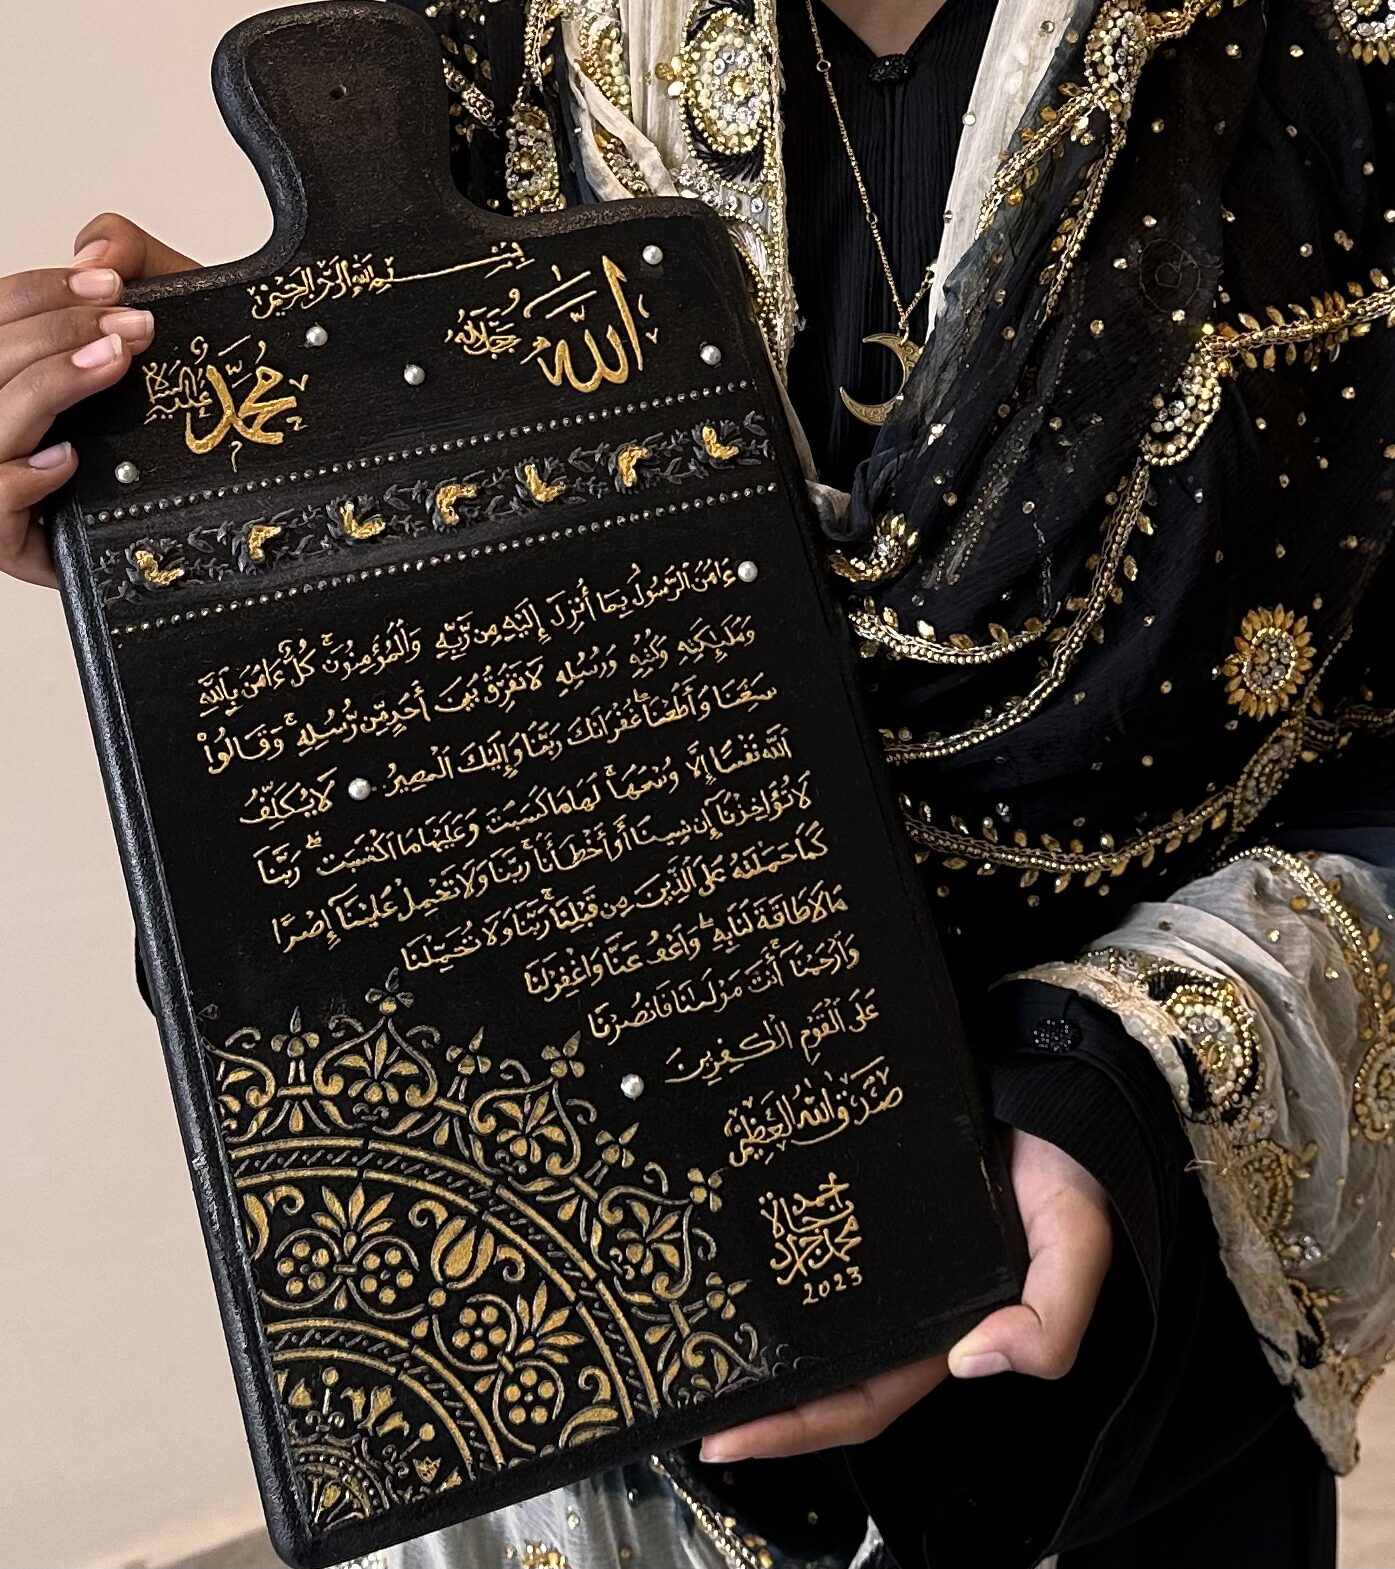 بسم الله الرحمن الرحيم
الله جل جلاله
محمد عليه السلام
ءَامَنَ ٱلرَّسُولُ بِمَا أُنْزِلَ إِلَيْهِ مِن رَّبِّهِ وَٱلْمُؤْمِنُونَ ۚ كُلٌّ ءَامَنَ بِٱللَّهِ
وَمَلَٰٓئِكَتِهِ وَكُتُبِهِ وَرُسُلِهِ لَا نُفَرِّقُ بَيْنَ أَحَدٍ مِّن رُّسُلِهِ ۚ وَقَالُوا۟
سَمِعْنَا وَأَطَعْنَا ۖ غُفْرَانَكَ رَبَّنَا وَإِلَيْكَ ٱلْمَصِيرُ لَا يُكَلِّفُ
ٱللَّهُ نَفْسًا إِلَّا وُسْعَهَا ۚ لَهَا مَا كَسَبَتْ وَعَلَيْهَا مَا ٱكْتَسَبَتْ ۗ رَبَّنَا
لَا تُؤَاخِذْنَآ إِن نَّسِينَآ أَوْ أَخْطَأْنَا ۚ رَبَّنَا وَلَا تَحْمِلْ عَلَيْنَآ إِصْرًا
كَمَا حَمَلْتَهُ عَلَى ٱلَّذِينَ مِن قَبْلِنَا ۚ رَبَّنَا وَلَا تُحَمِّلْنَا
مَا لَا طَاقَةَ لَنَا بِهِ ۖ وَٱعْفُ عَنَّا وَٱغْفِرْ لَنَا
وَٱرْحَمْنَآ ۚ أَنتَ مَوْلَىٰنَا فَٱنصُرْنَا
عَلَى ٱلْقَوْمِ ٱلْكَٰفِرِينَ
صدق الله العظيم
محمد جواد
2023